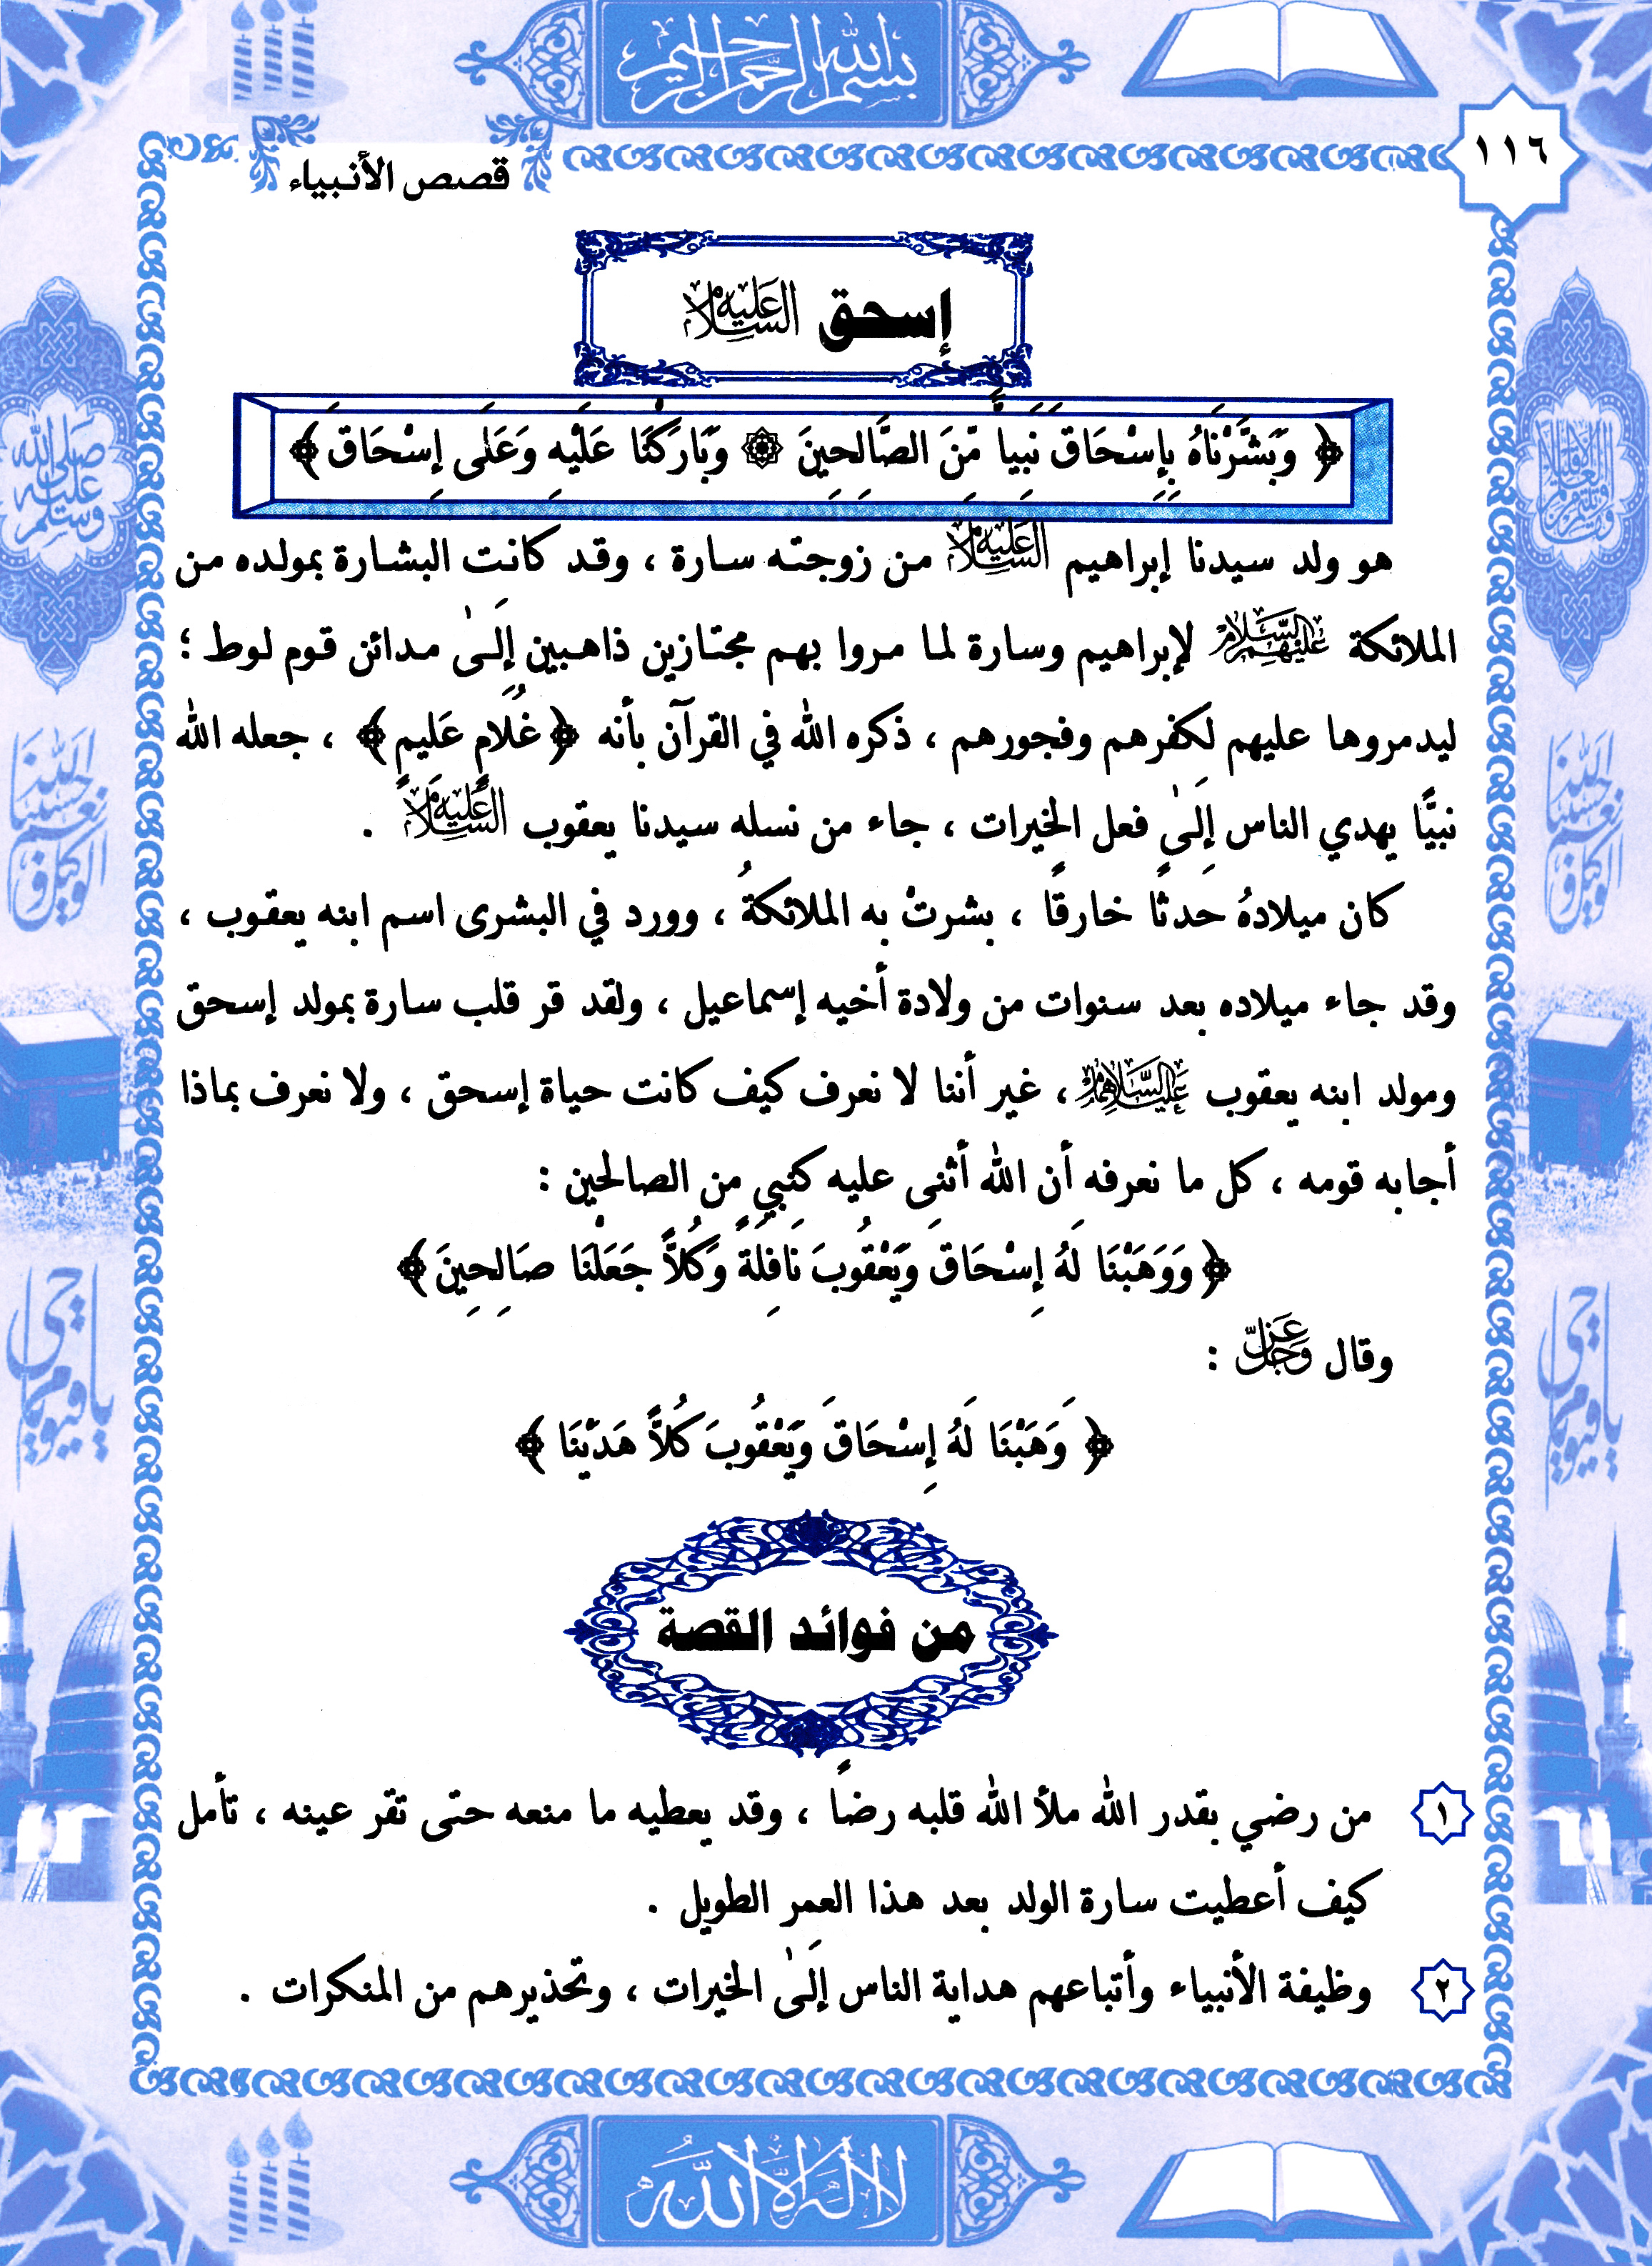 بسم الله الرحمن الرحيم
١١٦
قصص الأنبياء
إسحق عليه السلام
﴿ وَبَشَّرْنَاهُ بِإِسْحَاقَ نَبِياً مِّنَ الصَّالِحِينَ ۞ وَبَارَكْنَا عَلَيْهِ وَعَلَى إِسْحَاقَ ﴾
هو ولد سيدنا إبراهيم عليه السلام من زوجته سارة ، وقد كانت البشارة بمولده من
الملائكة عليهم السلام لإبراهيم وسارة لما مروا بهم مجتازين ذاهبين إلَىٰ مدائن قوم لوط ؛
ليدمروها عليهم لكفرهم وفجورهم ، ذكره الله في القرآن بأنه ﴿ غُلَامٍ عَلِيمٍ ﴾ ، جعله الله
نبيًّا يهدي الناس إلَىٰ فعل الخيرات ، جاء من نسله سيدنا يعقوب عليه السلام .
كان ميلادهُ حدثًا خارقًا ، بشرتْ به الملائكةُ ، وورد في البشرى اسم ابنه يعقوب ،
وقد جاء ميلاده بعد سنوات من ولادة أخيه إسماعيل ، ولقد قر قلب سارة بمولد إسحق
ومولد ابنه يعقوب عليهما السلام ، غير أننا لا نعرف كيف كانت حياة إسحق ، ولا نعرف بماذا
أجابه قومه ، كل ما نعرفه أن الله أثنى عليه كنبي من الصالحين :
﴿ وَوَهَبْنَا لَهُ إِسْحَاقَ وَيَعْقُوبَ نَافِلَةً وَكُلاًّ جَعَلْنَا صَالِحِينَ ﴾
وقال عز وجل :
﴿ وَهَبْنَا لَهُ إِسْحَاقَ وَيَعْقُوبَ كُلاًّ هَدَيْنَا ﴾
من فوائد القصة
١ من رضي بقدر الله ملأ الله قلبه رضاً ، وقد يعطيه ما منعه حتى تقر عينه ، تأمل
كيف أعطيت سارة الولد بعد هذا العمر الطويل .
٢ وظيفة الأنبياء وأتباعهم هداية الناس إلَىٰ الخيرات ، وتحذيرهم من المنكرات .
صلى الله عليه وسلم
حسبنا الله ونعم الوكيل
يا حي يا قيوم
حسبنا الله ونعم الوكيل
يا حي يا قيوم
لا إله إلا الله